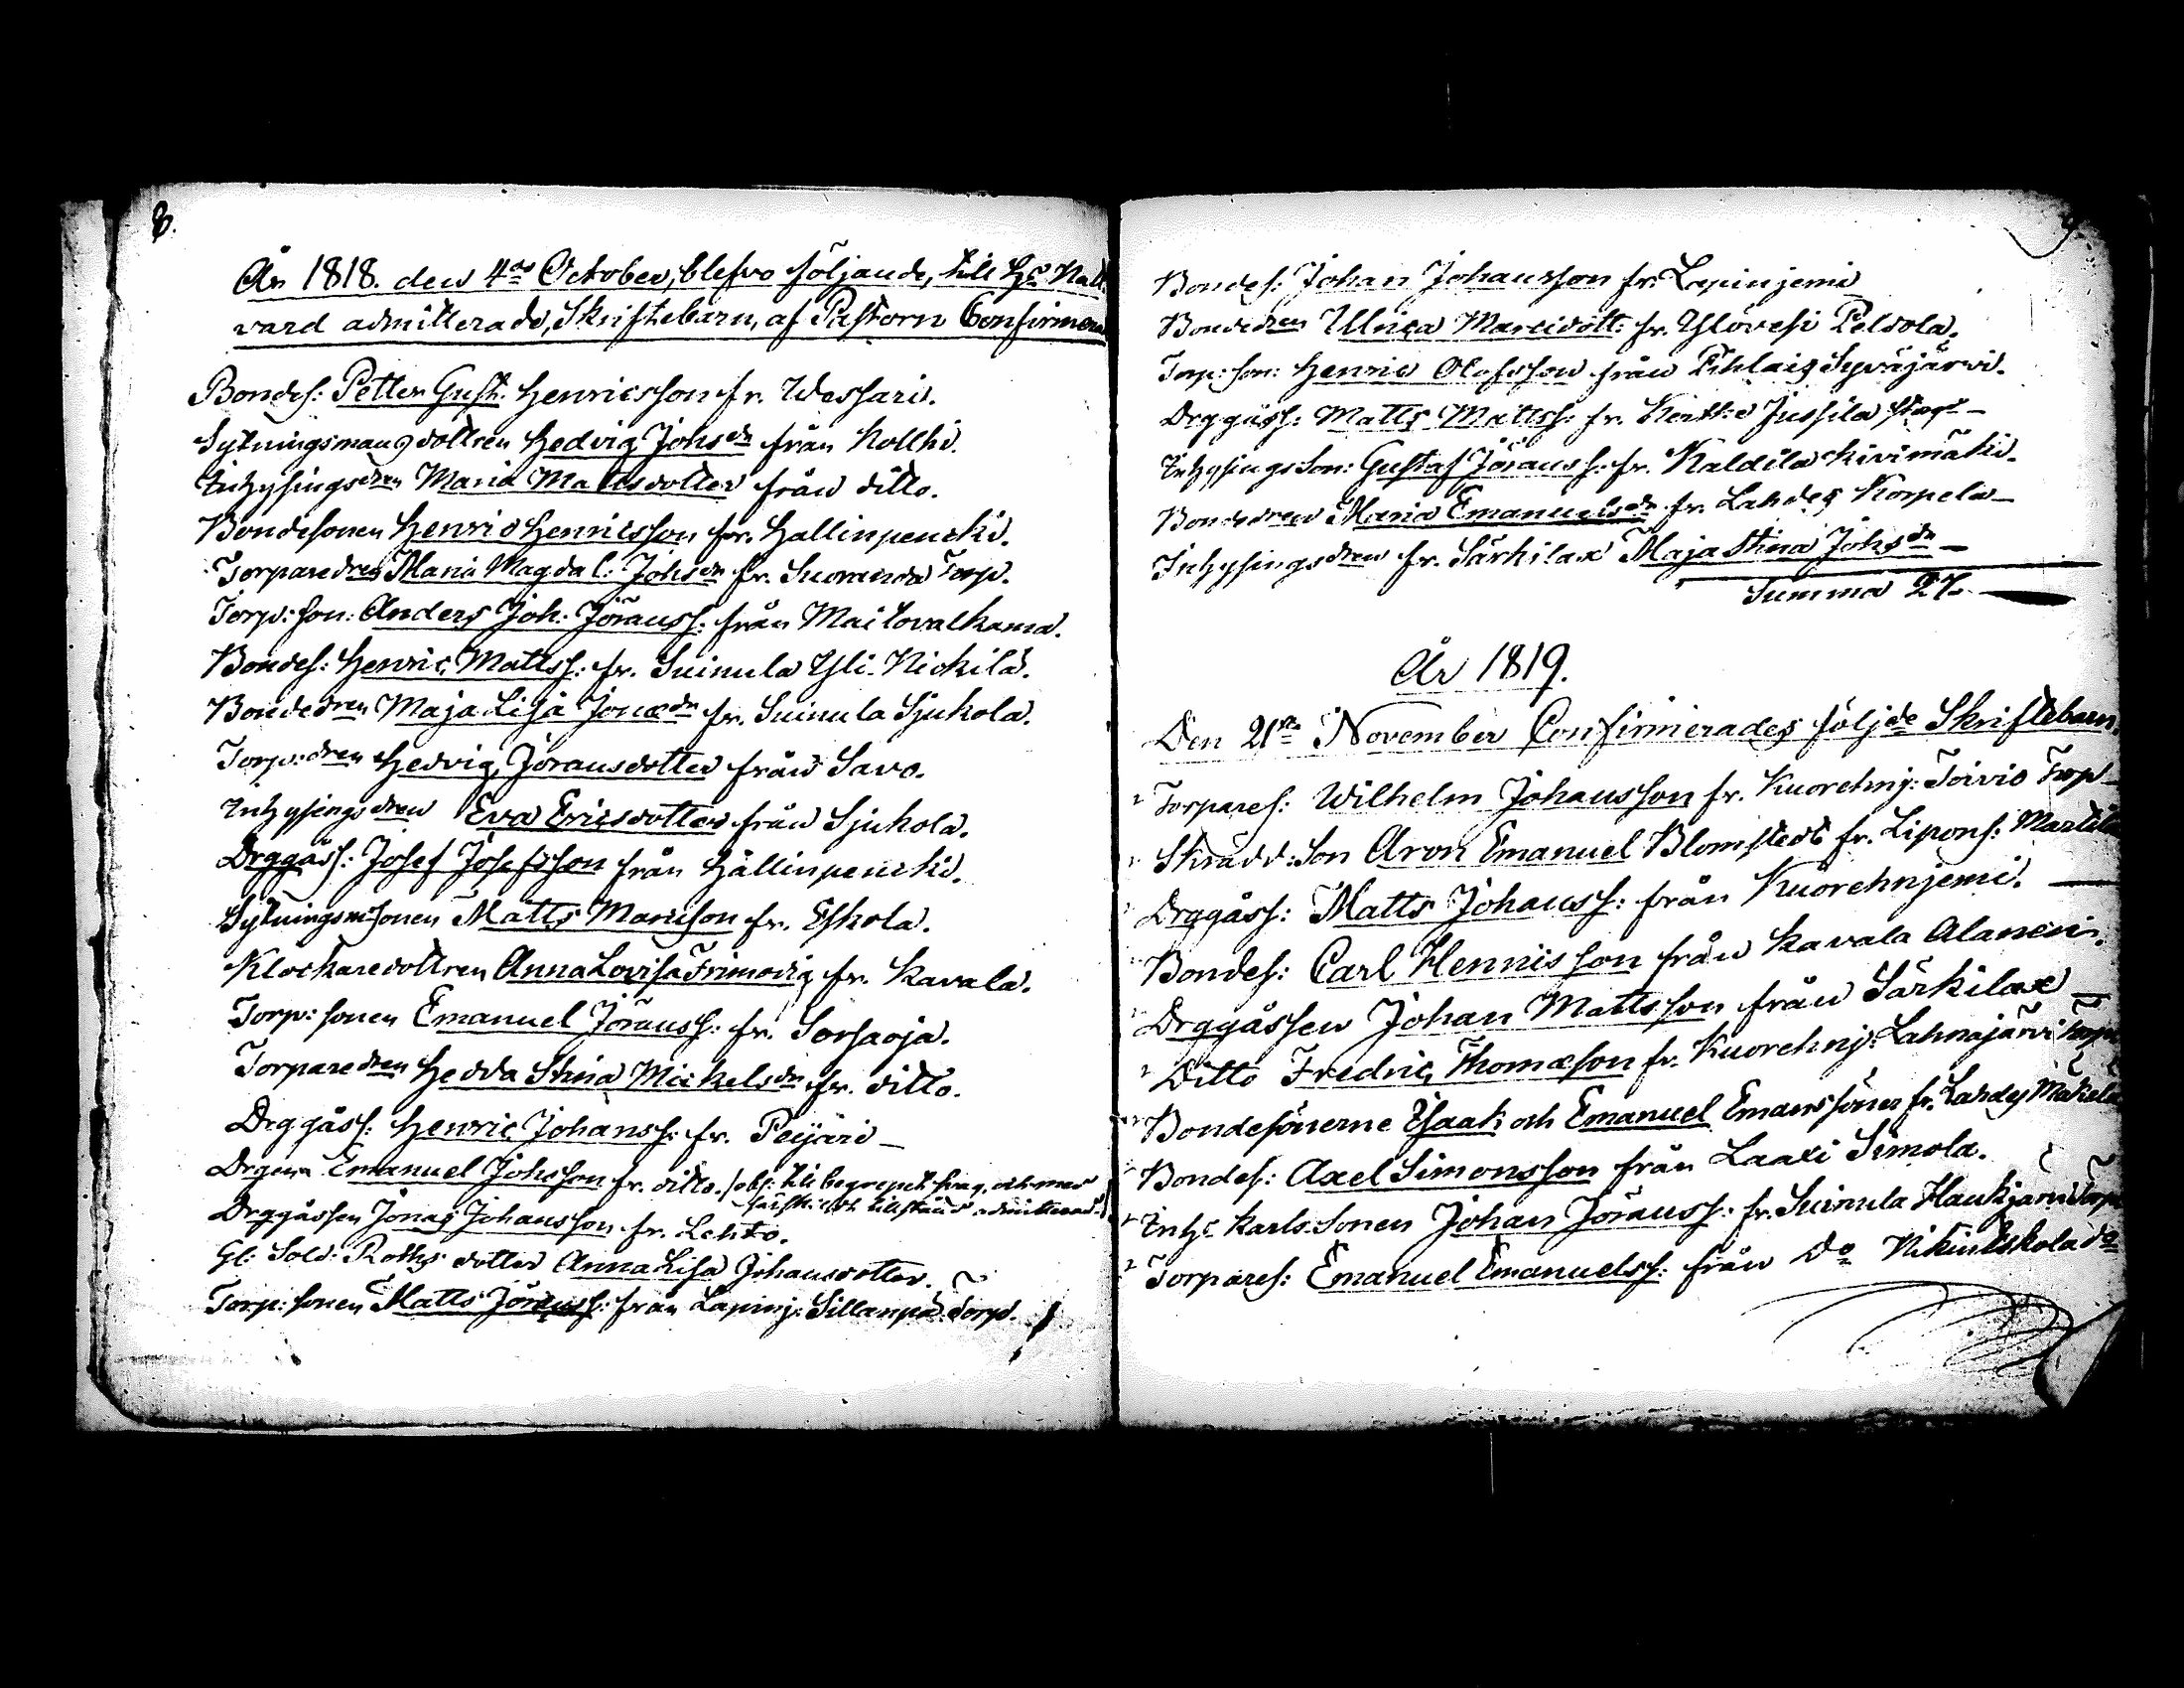 8.
År 1818. den 4de October, blefvo följande, till H:s Natt-
vard admitterade, Skriftebarn, af Pastorn Confirmera
Bondes: Petter Gust. Henricsson fr. Wessari.
Sytningsmans dottren Hedvig Johsdr från Kollki.
Inhysingsdren Maria Mattsdotter från ditto.
Bondesonen Henric Henricsson fr. Hallinpencki.
Torparedren Maria Magdal: Johsdr fr. Suoranda Torp.
Torp: son: Anders Joh. Jöranss: från Maitovalkama.
Bondes: Henric Matts: fr. Suinula Yli-Nickilä.
Bondedren Maja Lisa Jonædr fr. Suinula Sjukola.
Torp: dren Hedvig Jöransdotter från Savo.
Inhysings dren Eva Ericsdotter från Sjukola.
Drggåss: Josef Josefsson från Hallinpencki.
Sytningsm:sonen Matts Marcison fr. Eskola.
Klockaredottren Anna Lovisa Frimodig fr. Kavala.
Torp: sonen Emanuel Jöranss: fr. Sorsaoja.
Torparedren Hedda Stina Mickelsdr fr. ditto.
Drggåss: Henric Johanss: fr. Peijäri
Emanuel Johsson fr. ditto. /obs: till begrepet svag, och med
tillstånd admitterad./
Drggåssen Jonas Johansson fr. Lehto.
Gl: Sold: Roths dotter Anna Lisa Johansdotter.
Torp: sonen Matts Jöranss: från Lapinj: Sillanpä Torp.
Bondes: Johan Johansson fr. Lapinjemi
Bondedren Ulrica Marcidott: fr. Ylövesi Peldola.
Torp: son: Henric Olofsson från Syväjärvi.
Drggåss: Matts Mattss: fr. Jussila
Inhysings Son: Gustaf Jöranss: fr. Kaldila Kivimäki.
Bondedren Maria Emanuelsdr fr. Lahdes Korpela
Inhysingsdren fr. Särkilax Maja Stina Johsdr
Summa 27.
År 1819.
Den 21sta November Confirmerades följde Skriftebarn.
Torpares: Wilhelm Johansson fr. Kuorehnj: Toivio Torp
Skrädd: Son Aron Emanuel Blomstedt fr. Lipons: Martila
Drggåss: Matts Johanss: från Kuorehnjemi.
Bondes: Carl Hennisson från Kavala Alanen.
Drggåssen Johan Mattsson från Särkilax
Ditto Fredric Thomæson fr. Kuorehnj: Lahnajärvi Torp
Bondesönerne Isaak och Emanuel Emanssöner fr. Lahdes Mäkelä
Bondes: Axel Simonsson från Laaxi Simola.
Inh:s Karls Sonen Johan Jöranss: fr. Suinula Haukjärvi Torp
Torpares: Emanuel Emanuelss: från Do